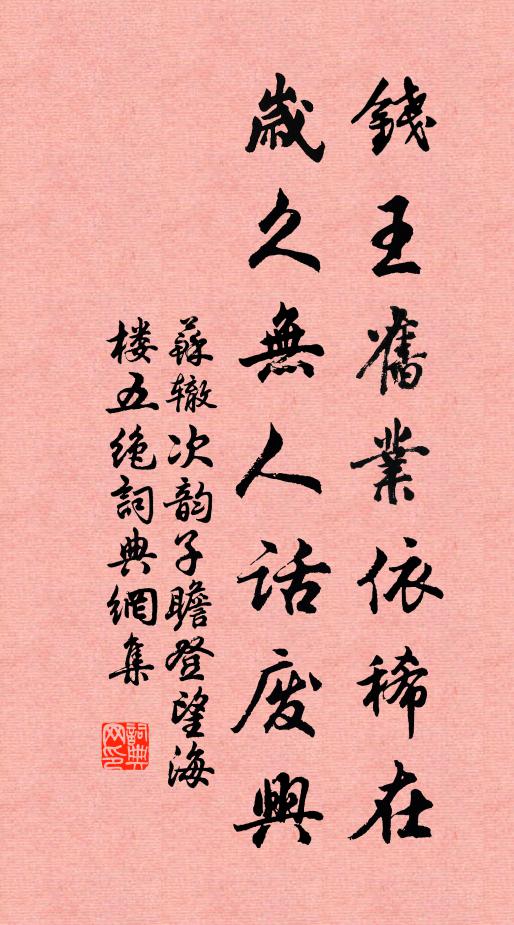 錢王舊業依稀在
歲久無人話廢興
蘇辙次韵子瞻登望海
楼五绝詞典網集
詞典
网印